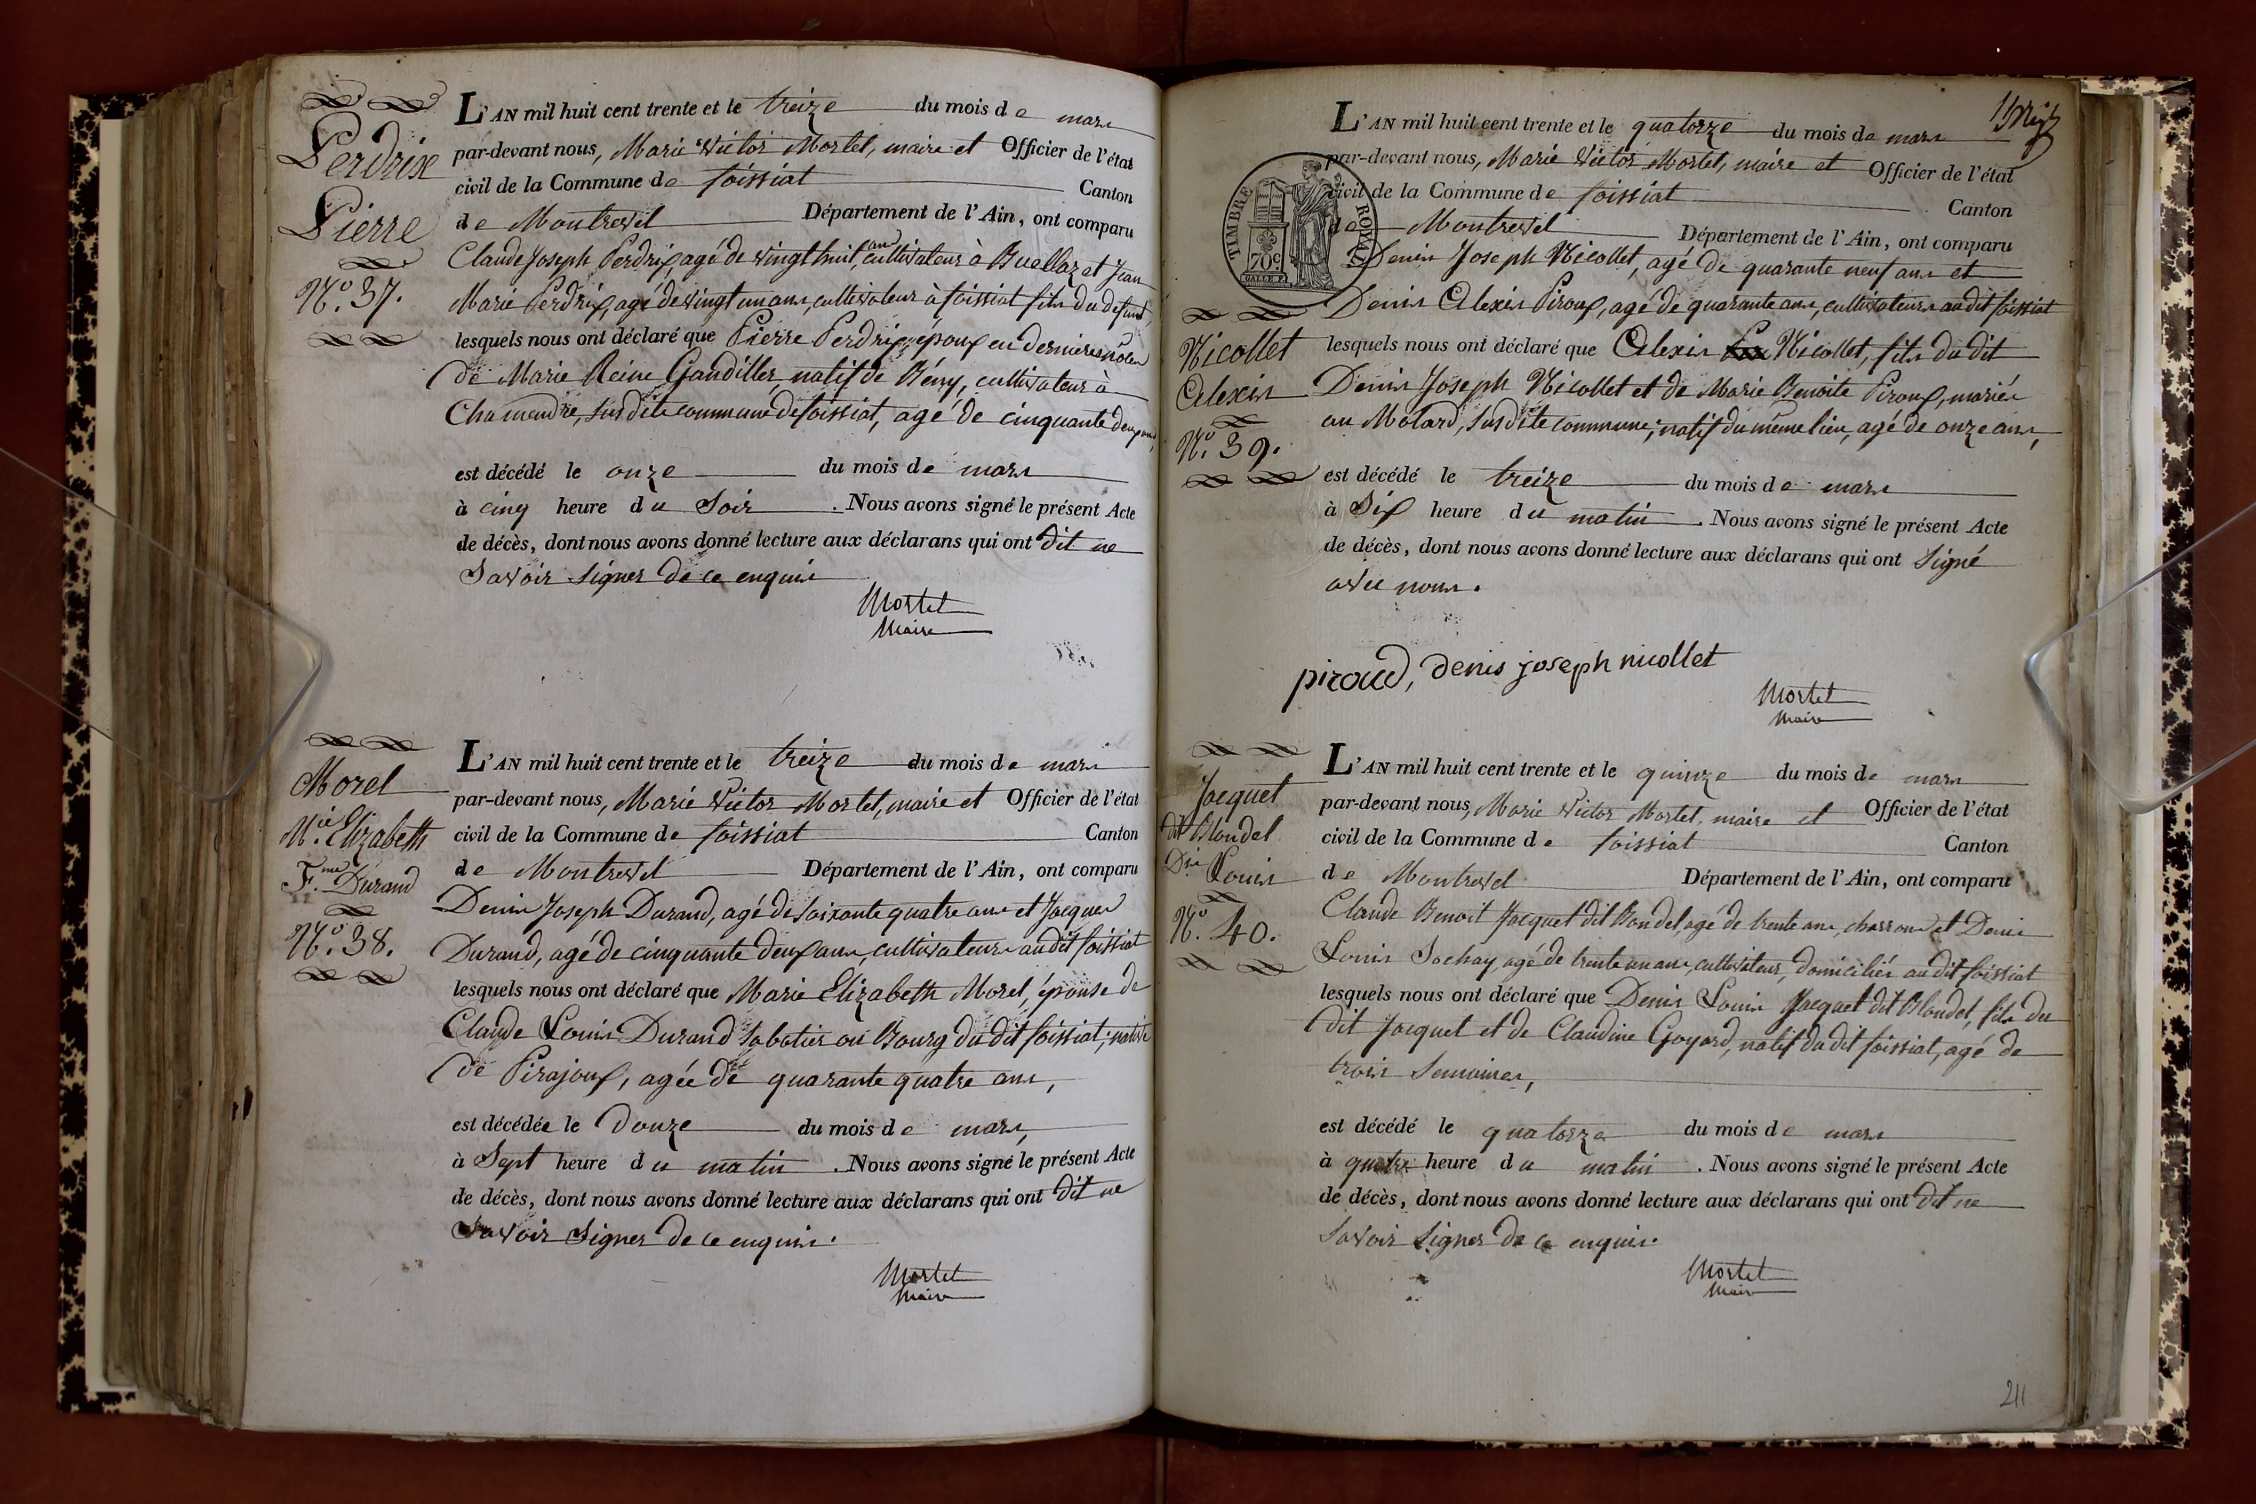 Perdrix
Pierre
N.º 37.
L'AN mil huit cent trente et le treize du mois de mars
par-devant nous, Marie Victor Mortet, maire et Officier de l'état
civil de la Commune de foissiat Canton
de Montrevel Département de l'Ain, ont comparu
Claude Joseph Perdrix, agé de vingt huit ans cultivateur à Buellaz et Jean
Marie Perdrix, agé de vingt un ans, cultivateur à foissiat fils du défunt,
lesquels nous ont déclaré que Pierre Perdrix, époux en dernières nôces
de Marie Reine Gandiller, natif de Bény, cultivateur à
Chamandre, susdite commune de foissiat, agé de cinquante deux ans,
est décédé le onze du mois de mars
à cinq heure du Soir. Nous avons signé le présent Acte
de décès, dont nous avons donné lecture aux déclarans qui ont dit ne
Savoir signer de ce enquis
Mortet
Maire
Morel
M.ie Elizabeth
F.me Durand
N.º 38.
L'AN mil huit cent trente et le treize du mois de mars
par-devant nous, Marie Victor Mortet, maire et Officier de l'état
civil de la Commune de foissiat Canton
de Montrevel Département de l'Ain, ont comparu
Denis Joseph Durand, agé de soixante quatre ans et Jacques
Durand, agé de cinquante deux ans, cultivateurs au dit foissiat
lesquels nous ont déclaré que Marie Elizabeth Morel, épouse de
Claude Louis Durand Sabotier au Bourg du dit foissiat; native
de Pirajoux, agée de quarante quatre ans,
est décédée le Douze du mois de mars,
à Sept heure du matin. Nous avons signé le présent Acte
de décès, dont nous avons donné lecture aux déclarans qui ont dit ne
Savoir Signer de ce enquis.
Mortet
Maire
TIMBRE ROYAL
70c
Nicollet
Alexis
N.º 39.
L'AN mil huit cent trente et le quatorze du mois de mars
par-devant nous, Marie Victor Mortet, maire et Officier de l'état
civil de la Commune de foissiat Canton
de Montrevel Département de l'Ain, ont comparu
Denis Joseph Nicollet, agé de quarante neuf ans et
Denis Alexis Piroux, agé de quarante ans, cultivateurs au dit foissiat
lesquels nous ont déclaré que Alexis Nicollet, fils du dit
Denis Joseph Nicollet et de Marie Benoite Piroux, mariés
au Molard, susdite commune; natif du même lieu, agé de onze ans,
est décédé le treize du mois de mars
à Six heure du matin. Nous avons signé le présent Acte
de décès, dont nous avons donné lecture aux déclarans qui ont signé
avec nous.
piroud, denis joseph nicollet
Mortet
Maire
Jacquet
dit Blondel
D.is Louis
N.º 40.
L'AN mil huit cent trente et le quinze du mois de mars
par-devant nous, Marie Victor Mortet, maire et Officier de l'état
civil de la Commune de foissiat Canton
de Montrevel Département de l'Ain, ont comparu
Claude Benoit Jacquet dit Blondel, agé de trente ans, charron et Denis
Louis Sochay, agé de trente un ans, cultivateur, domiciliés au dit foissiat
lesquels nous ont déclaré que Denis Louis Jacquet dit Blondel, fils du
dit Jacquet et de Claudine Goyard, natif du dit foissiat, agé de
trois semaines,
est décédé le quatorze du mois de mars
à quatre heure du matin. Nous avons signé le présent Acte
de décès, dont nous avons donné lecture aux déclarans qui ont dit ne
Savoir signer de ce enquis.
Mortet
Maire
211